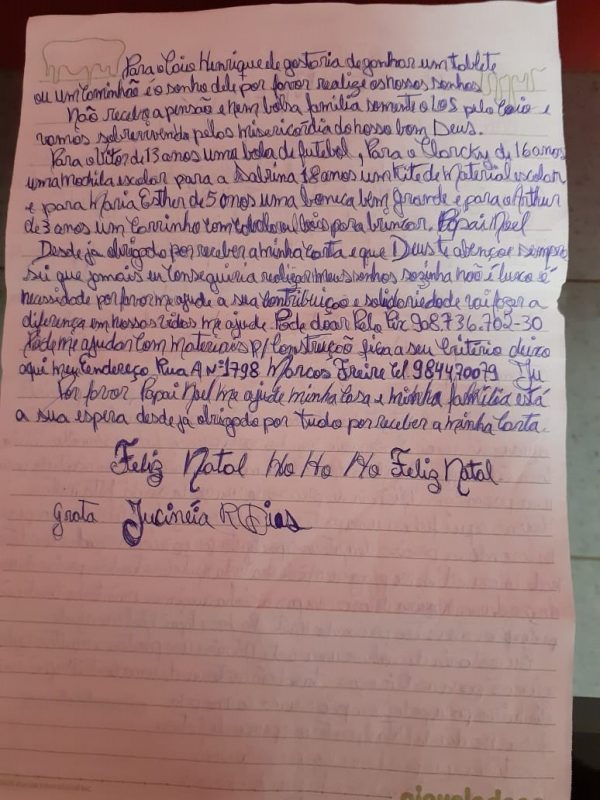 Para o Caio Henrique le gostaria de ganhar um tablete
ou um caminhão é o sonho dele por favor realize os nossos sonhos
Não recebo a pensão e nem bolsa familia somente o LOS pelo Caio e
vamos sobrevivendo pelos misericordia do nosso bom Deus.
Para o Vitor de 13 anos uma bola de futebol, Para o Clarcky de 16 anos
uma mochila escolar para a Sabrina 18 anos um Kit de Material escolar
e para Maria Esther de 5 anos uma boneca bem grande e para o Arthur
de 3 anos um carrinho com para brincar. Papai Noel
Desde ja obrigado por receber a minha carta e que Deus te abençoe sempre
sei que jamais eu conseguiria realizar meus sonhos sozinha não é luxo é
necessidade por favor me ajude a sua contribuição e solidariedade vai fazer a
diferença em nossas vidas me ajude. Pode doar Pelo Pix 908.736.702-30
Pode me ajudar com materiais p/ construção fica a seu criterio deixo
aqui meu Endereço Rua A Nº 1798 Marcos Freire tel 984470079 Ju
Por favor Papai Noel me ajude minha casa e minha familia está
a sua espera desde ja obrigado por tudo por receber a minha Carta.
Feliz Natal Ho Ho Ho Feliz Natal
Grata Jucineia R Dias